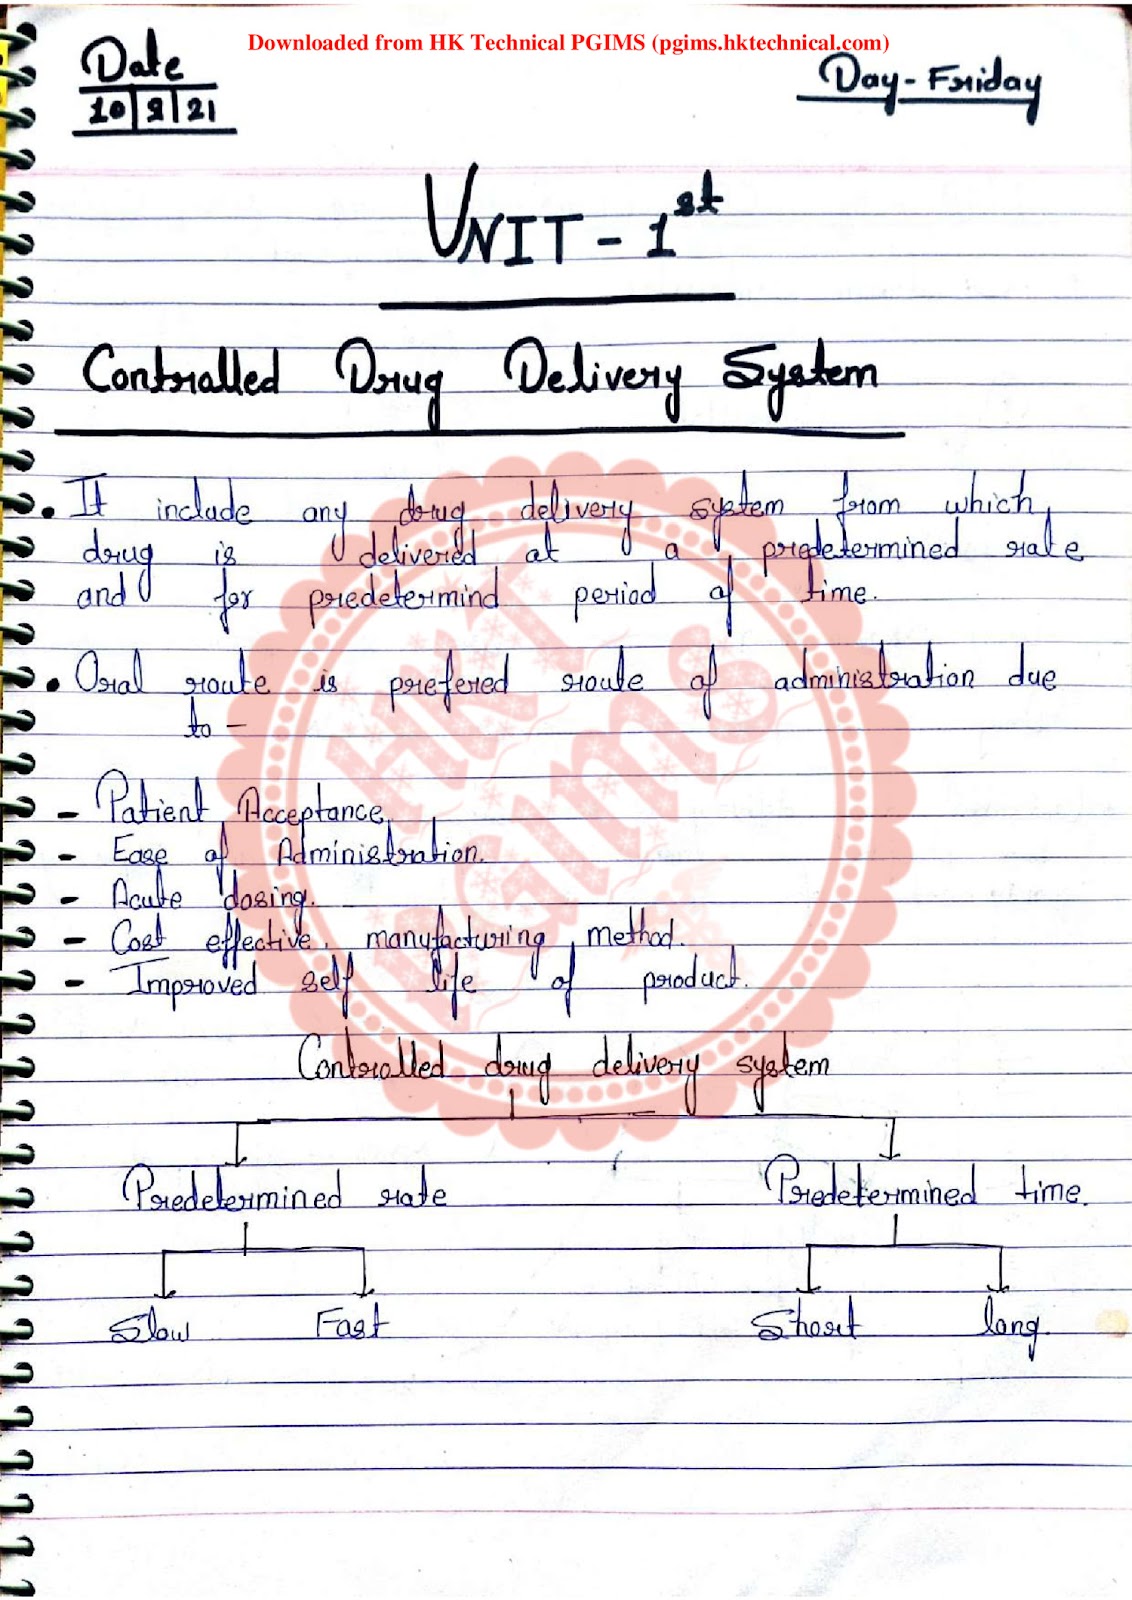 Downloaded from HK Technical PGIMS (pgims.hktechnical.com)
Date
Day - Friday
10|9|21
UNIT - 1st
Controlled Drug Delivery System
• It include any drug delivery system from which
drug is delivered at a predetermined rate
and for predetermind period of time.
• Oral route is prefered route of administration due
to -
- Patient Acceptance
- Ease of Administration.
- Acute dosing.
- Cost effective manufacturing method.
- Improved self life of product.
Controlled drug delivery system
Predetermined rate Predetermined time.
Slow Fast Short long.
HKT
PGIMS